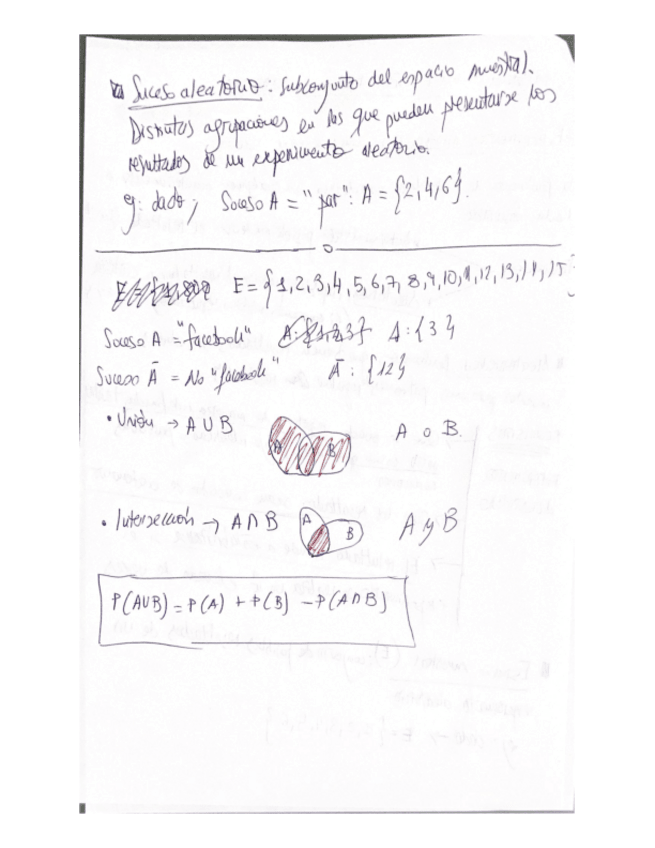 Suceso aleatorio: subconjunto del espacio muestral.
Distintas agrupaciones en las que pueden presentarse los
resultados de un experimento aleatorio.
eg: dado; Suceso A = "par": A = {2,4,6}.
E = {1,2,3,4,5,6,7,8,9,10,11,12,13,14,15}
Suceso A = "facebook" A: {1,2,3} A: {3}
Suceso Ā = No "facebook" Ā: {12}
• Unión → A ∪ B A B A o B.
• Intersección → A ∩ B A B A y B
P(A∪B) = P(A) + P(B) - P(A∩B)